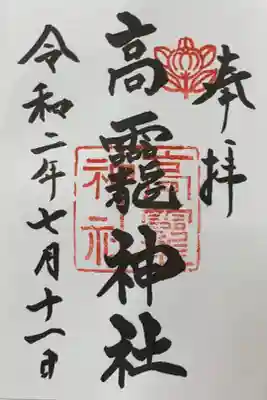 奉拝
高龗神社
高龗神社
令和二年七月十一日